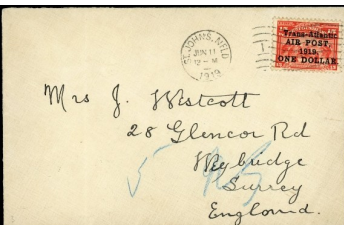 ST. JOHN'S, NFLD
JUN 11
12 - M
1919
Trans-Atlantic
AIR POST,
1919,
ONE DOLLAR.
Mrs J. Westcott
28 Glencoe Rd
Weybridge
Surrey
England.
5